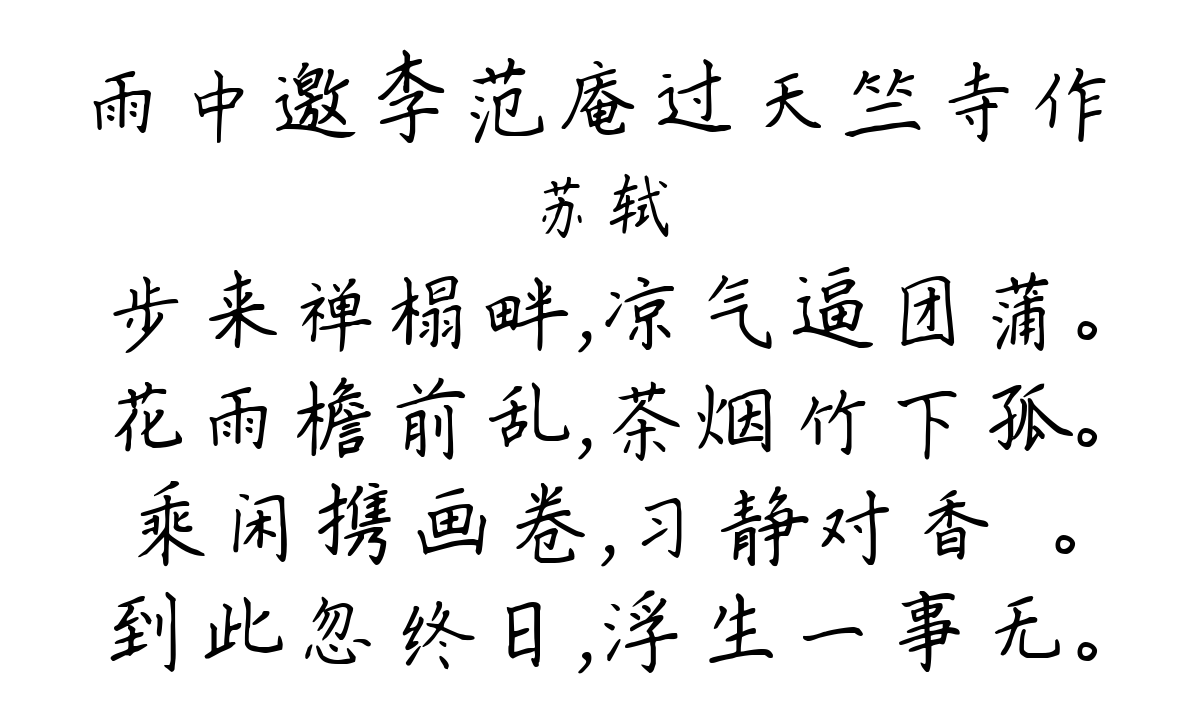 雨中邀李范庵过天竺寺作
苏轼
步来禅榻畔,凉气逼团蒲。
花雨檐前乱,茶烟竹下孤。
乘闲携画卷,习静对香 。
到此忽终日,浮生一事无。